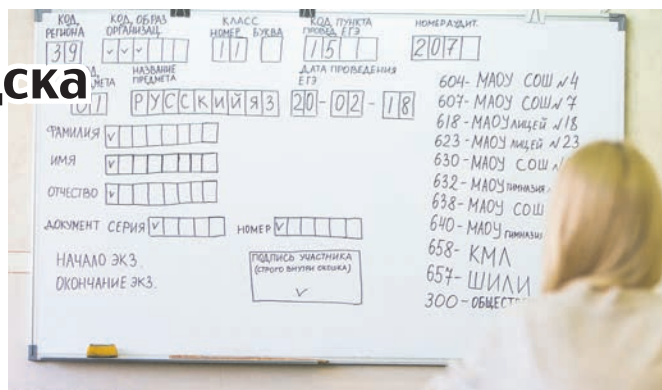 КОД РЕГИОНА КОД ОБРАЗ ОРГАНИЗАЦ. КЛАСС НОМЕР БУКВА КОД ПУНКТА ПРОВЕД ЕГЭ НОМЕР АУДИТ.
39 11 15 207
ска
НАЗВАНИЕ ПРЕДМЕТА ДАТА ПРОВЕДЕНИЯ ЕГЭ
01 РУССКИЙ ЯЗ 20-02-18
ФАМИЛИЯ
ИМЯ
ОТЧЕСТВО
ДОКУМЕНТ СЕРИЯ НОМЕР
НАЧАЛО ЭКЗ.
ОКОНЧАНИЕ ЭКЗ.
ПОДПИСЬ УЧАСТНИКА
(СТРОГО ВНУТРИ ОКОШКА)
604- МАОУ СОШ №4
607- МАОУ СОШ №7
618- МАОУ ЛИЦЕЙ №18
623- МАОУ ЛИЦЕЙ №23
630- МАОУ СОШ
632- МАОУ ГИМНАЗИЯ
638- МАОУ СОШ
640- МАОУ ГИМНАЗИЯ
658- КМЛ
657- ШИЛИ
300-